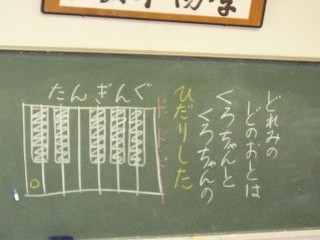 たんぎんぐ
どれみの
どのおとは
くろちゃんと
くろちゃんの
ひだりした